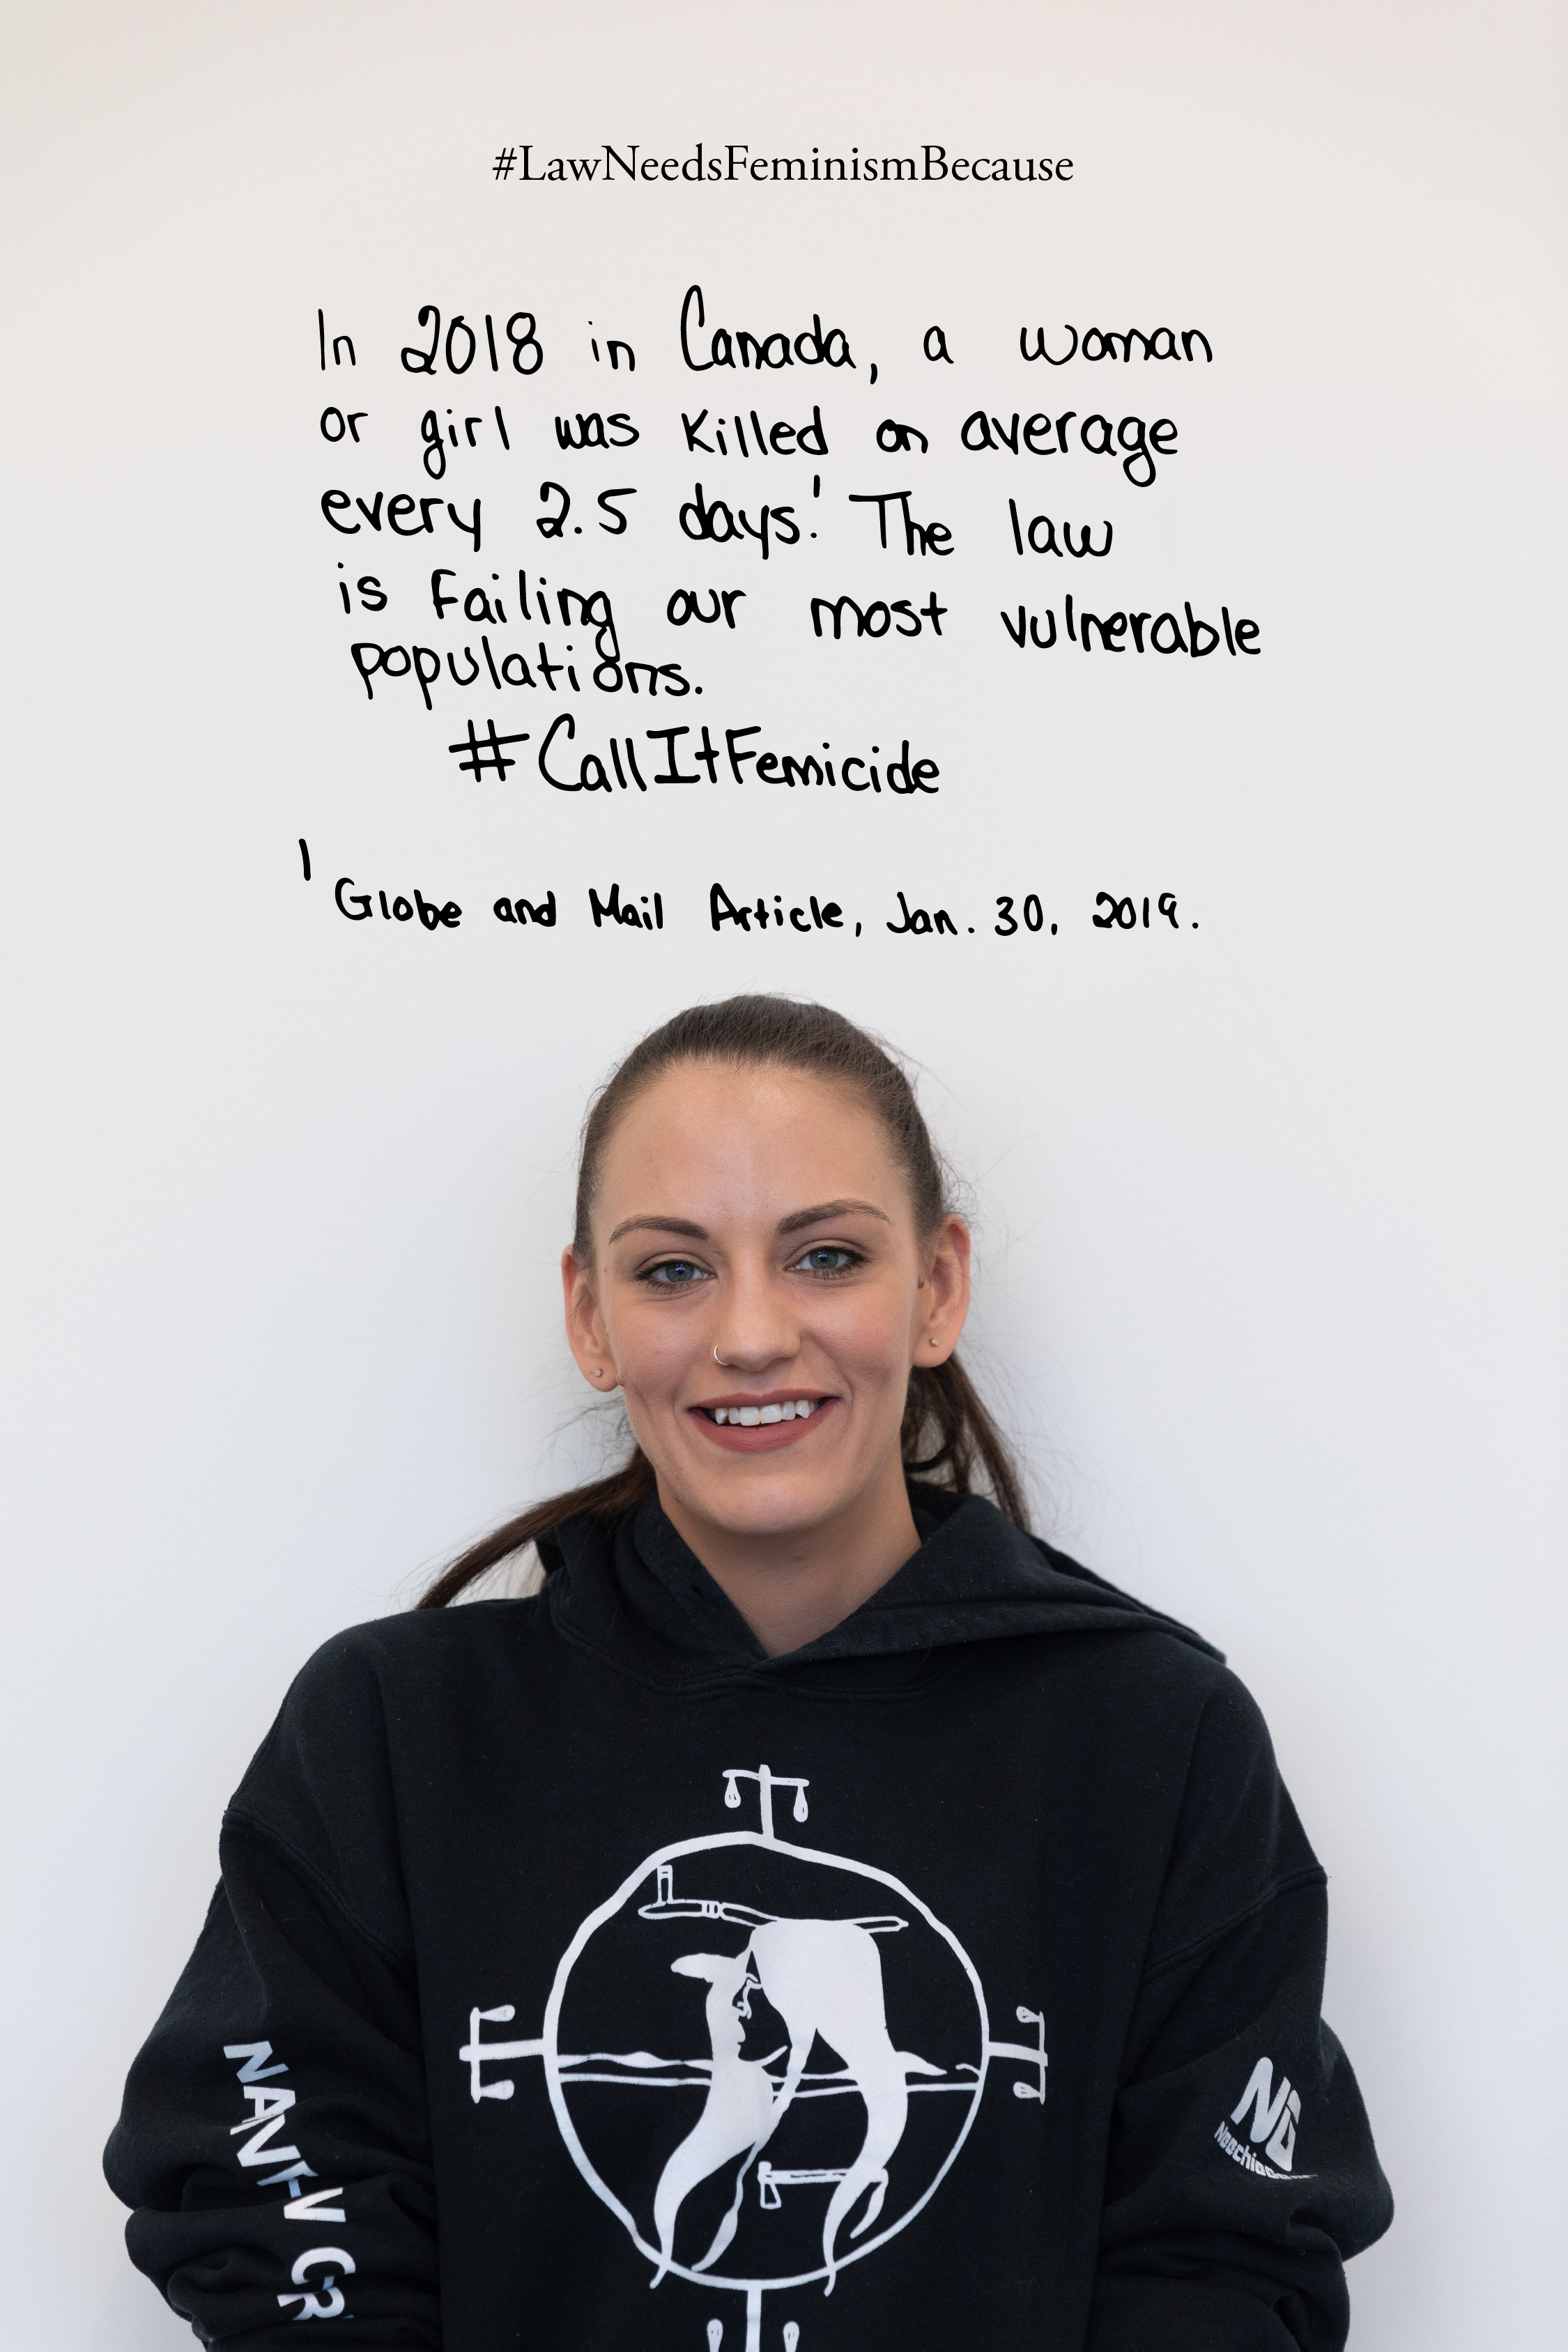 #LawNeedsFeminismBecause
In 2018 in Canada, a woman
or girl was killed on average
every 2.5 days.¹ The law
is failing our most vulnerable
populations.
#CallItFemicide
¹ Globe and Mail Article, Jan. 30, 2019.
NG